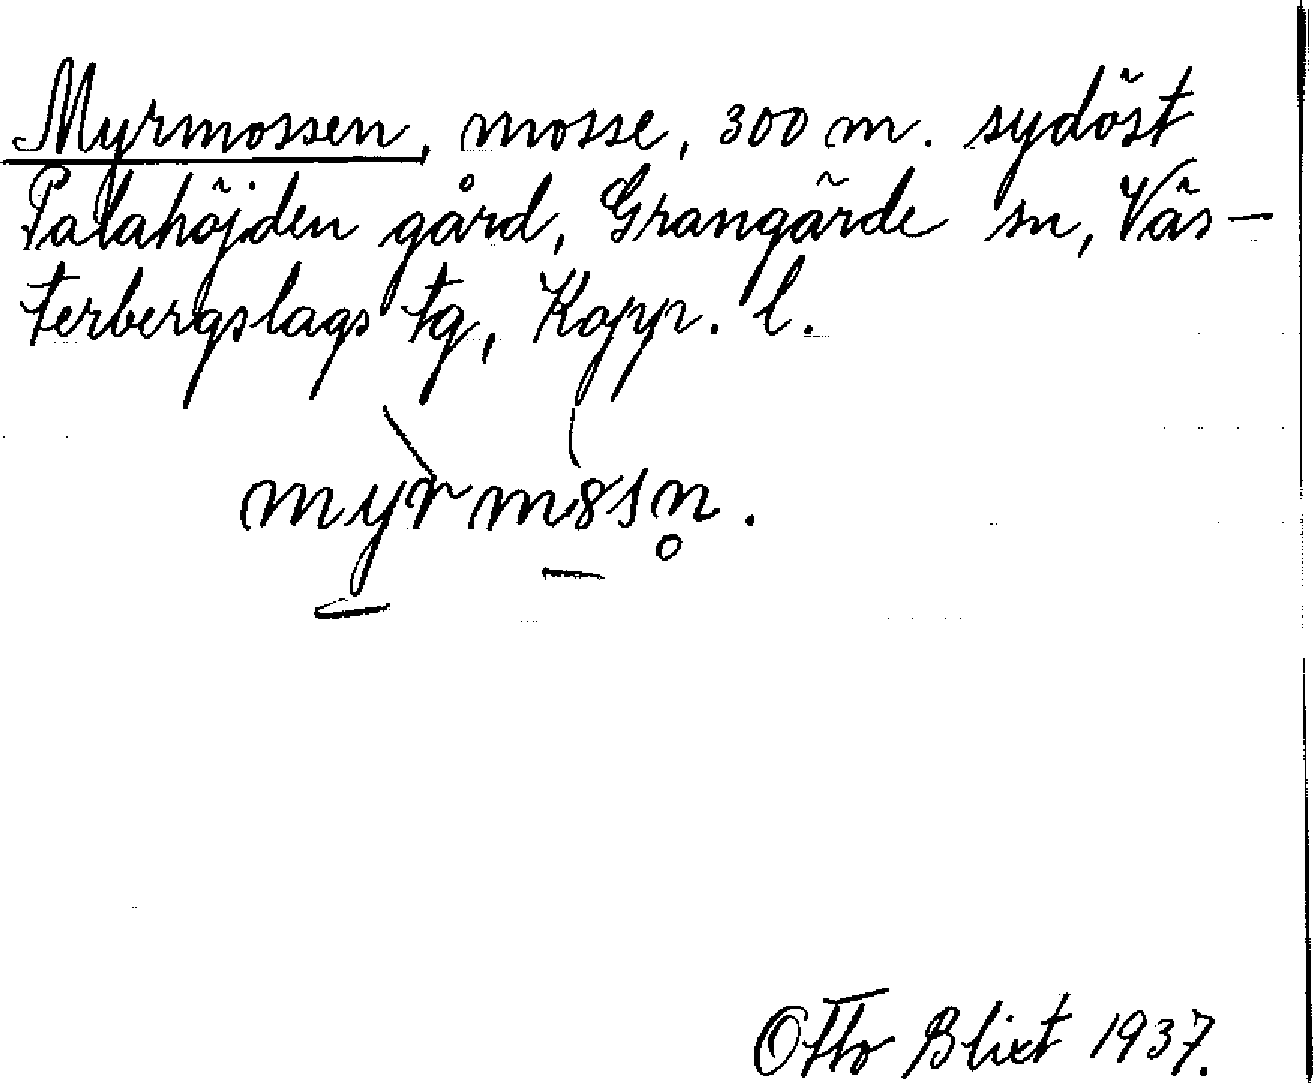 Myrmossen, mosse, 300 m. sydöst
Palahöjden gård, Grangärde sn, Väs-
terbergslags tg, Kopp. l.
myrmssn.
Otto Blixt 1937.